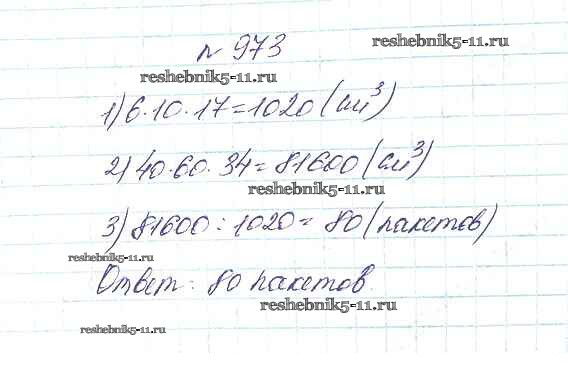 № 973
reshebnik5-11.ru
reshebnik5-11.ru
1) 6·10·17=1020 (см³)
2) 40·60·34=81600 (см³)
reshebnik5-11.ru
3) 81600:1020=80 (пакетов)
reshebnik5-11.ru
Ответ: 80 пакетов.
reshebnik5-11.ru
reshebnik5-11.ru